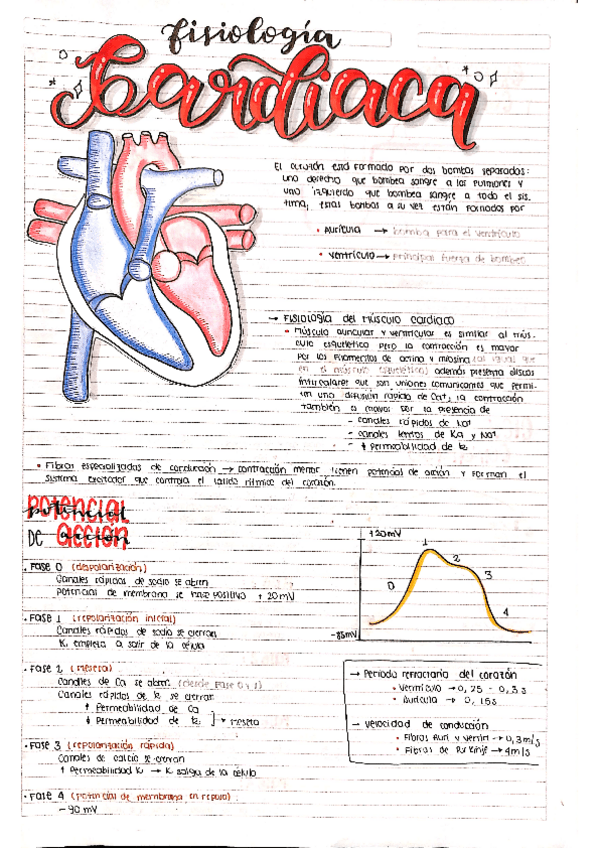 fisiología
Cardiaca
El corazón está formado por dos bombas separadas:
uno derecho que bombea sangre a los pulmones y
uno izquierdo que bombea sangre a todo el sis.
tema, estas bombas a su vez están formadas por
• Aurícula → bomba para el ventrículo
• Ventrículo → principal fuerza de bombeo
→ Fisiología del músculo cardiaco
• Músculo auricular y ventricular es similar al mús.
culo esquelético pero la contracción es mayor
por los filamentos de actina y miosina (al igual que
en el músculo esquelético) además presenta discos
intercalares que son uniones comunicantes que permi-
ten una difusión rápida de Ca++, la contracción
también es mayor por la presencia de
- canales rápidos de Na+
- canales lentos de Ka y Na+
- ↑ permeabilidad de k
• Fibras especializadas de conducción → contracción menor, tienen potencial de acción y forman el
sistema excitador que controla el latido rítmico del corazón.
Potencial
DE acción
. Fase 0 (despolarización)
Canales rápidos de sodio se abren
potencial de membrana se hace positivo +20mV
. Fase 1 (repolarización inicial)
Canales rápidos de sodio se cierran
K+ empieza a salir de la célula
. Fase 2 (meseta)
Canales de Ca se abren (desde fase 0 y 1)
Canales rápidos de k se cierran
↑ Permeabilidad de Ca
↓ Permeabilidad de k → meseta
. Fase 3 (repolarización rápida)
Canales de calcio se cierran
↑ Permeabilidad K → K salga de la célula
. Fase 4 (potencial de membrana en reposo)
- 90 mV
+20mV
1
2
0
3
4
-85mV
→ Periodo refractario del corazón
• Ventrículo → 0,25 - 0,3s
• Aurícula → 0,15s
→ velocidad de conducción
• Fibras Auri y ventri → 0,3m/s
• Fibras de Purkinje → 4m/s